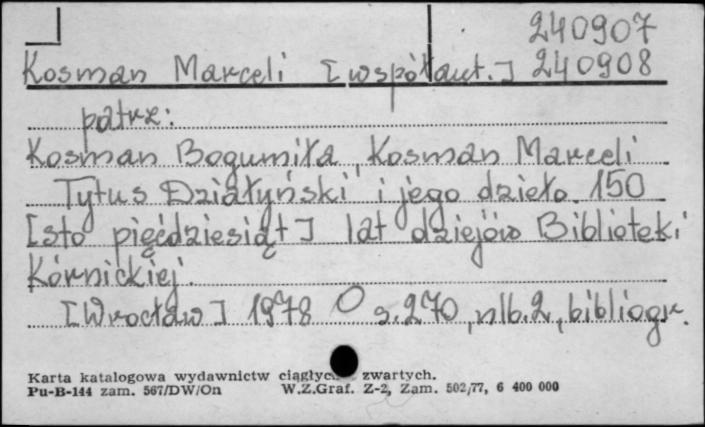 240907
Kosman Marceli [współaut.] 240908
patrz:
Kosman Bogumiła, Kosman Marceli
Tytus Działyński i jego dzieło. 150
[sto pięćdziesiąt] lat dziejów Biblioteki
Kórnickiej.
[Wrocław] 1978 O s. 270, nlb. 2, bibliogr.
Karta katalogowa wydawnictw zwartych.
Pu-B-144 zam. 567/DW/On W.Z.Graf. Z-2, Zam. 502/77, 6 400 000